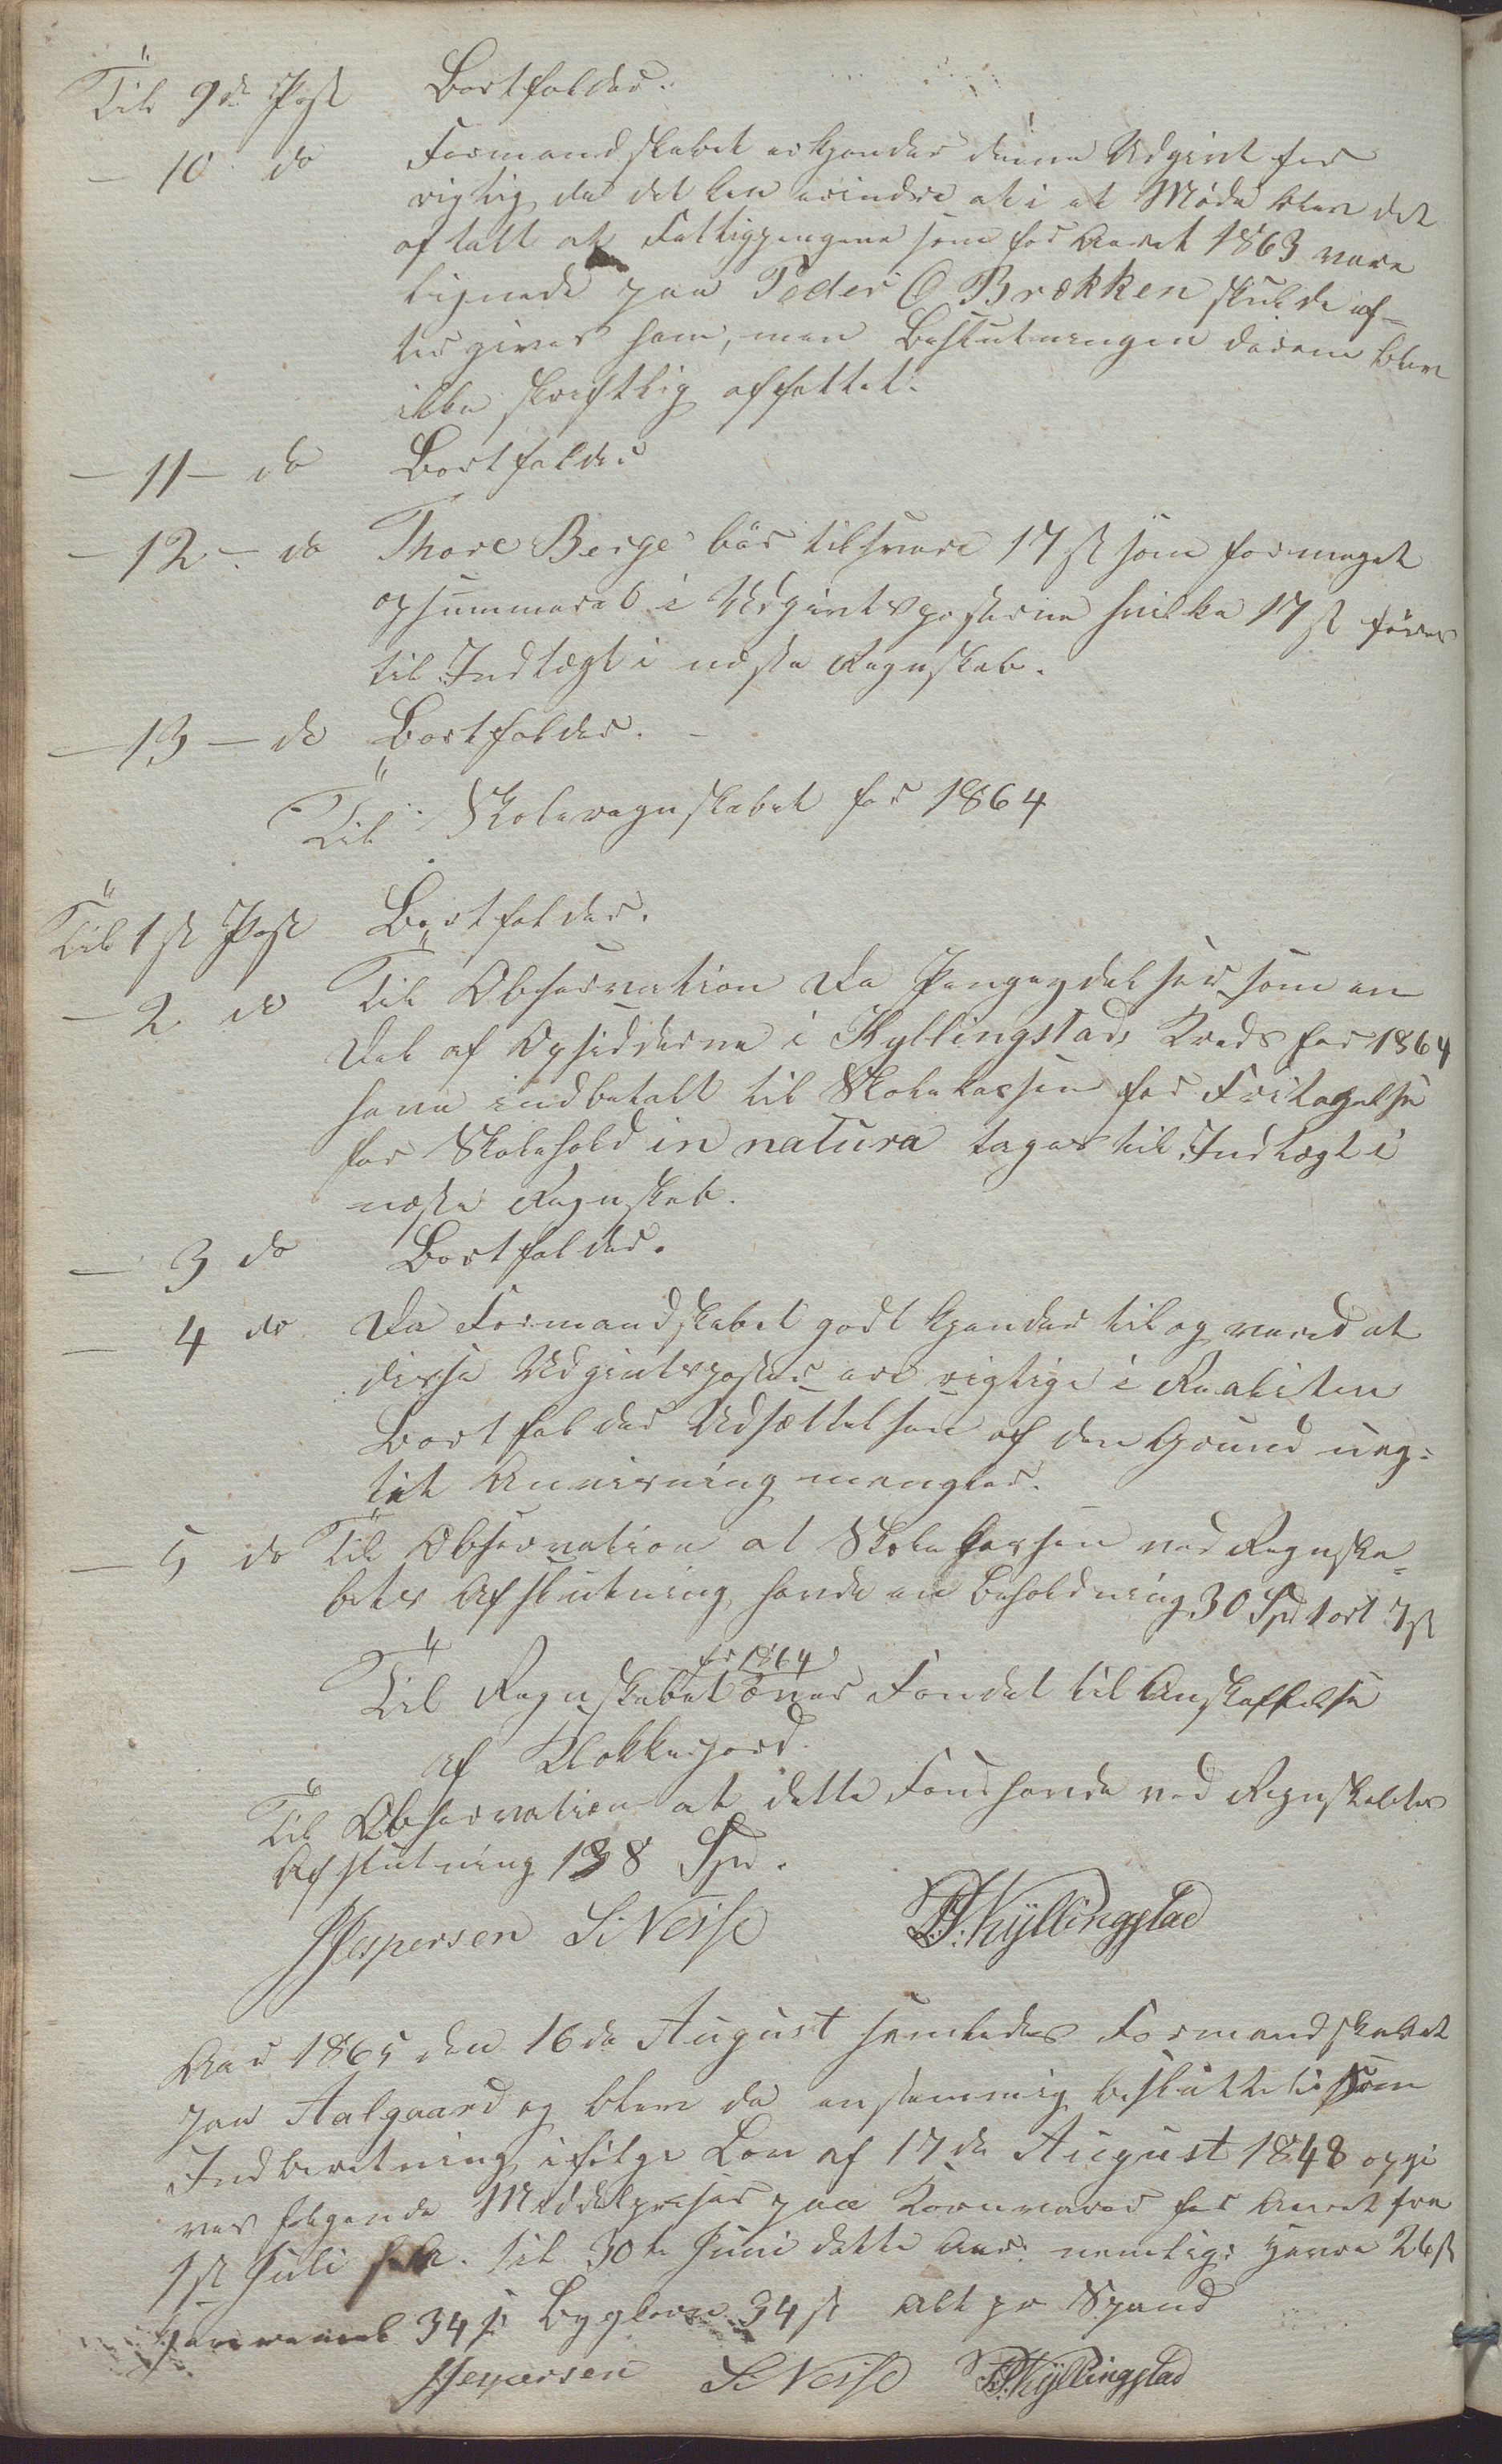 Til 9de Post Bortfalder.
– 10 do Formandskabet erkjender denne Udgivt for
rigtig, da det kan erindre at i et Møde blev det
aftalt at Fattigpengene som for Aaret 1863 vare
lignede paa Peder O Brækken skulde ef-
tergives ham, men Beslutningen derom blev
ikke skriftlig affattet.
– 11 – do Bortfalder
– 12 – do Thore Berge bör tilsvare 17 ß som formeget
opsummeret i Udgivtsposterne hvilke 17 ß föres
til Indtægt i næste Regnskab.
– 13 – do Bortfalder. –
Til Skoleregnskabet for 1864
Til 1ste Post Bortfalder.
– 2 do Til Observation da Pengeydelser som en
Del af Opsidderne i Kyllingstads Kreds for 1864
have indbetalt til Skolekassen for Fritagelse
for Skolehold in natura tages til Indtægt i
næste Regnskab.
– 3 do Bortfalder.
– 4 do Da Formandskabet godtkjender tilog med at
disse Udgivtsposter ere rigtige i Realiten
Bortfalder Udsættelsen af den Grund uag-
tet Anvisning mangler.
– 5 do Til Observation at Skolekassen ved Regnska-
bets Afslutning havde en Beholdning 30 Spd 1 ort 7 ß
for 1864
Til Regnskabet over Fondet til Anskaffelse
af Klokkerjord.
Til Observation at dette Fond havde ved Regnskabets
Afslutning 138 Spd.
Jespersen S. Nesse T. Kyllingstad
Aar 1865 den 16de August samledes Formandskabet
paa Aalgaard og blev da enstemmig besluttet som
Indberetning ifölge Lov af 17de August 1848 opgi
ves følgende Middelpriser paa Kornvarer for Aaret fra
1ste Juli til 30te Juni dette Aar. nemlig: Havre 26 ß
34 ß Bygkorn 34 ß Alt pr Spand
Jespersen S. Nesse T. Kyllingstad